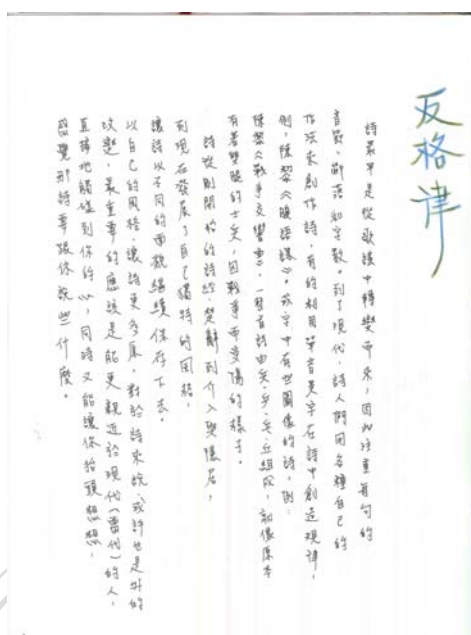 反格律
詩最早是從歌謠中轉變而來,因此注重每句的
音節、斷落和字數。到了現代,詩人們用各種自己的
作法來創作詩,有的利用單音異字在詩中創造規律,
例:陳黎《腹語課》。家中有些圖像的詩,例:
陳黎《戰爭交響曲》,整首詩由兵、乒、乓、丘組成,就像原本
有著雙腿的士兵,因戰爭而受傷的樣子。
詩從剛開始的詩經、楚辭到介入與隱居,
到現在發展了自己獨特的風格,
讓詩以不同的面貌繼續保存下去。
以自己的風格,讓詩更多廣,對於詩來說,或許也是好的
改變,最重要的應該是能更親近於現代(當代)的人,
直接地觸碰到你的心,同時又能讓你抬頭想想,
感覺那詩要跟你說些什麼。